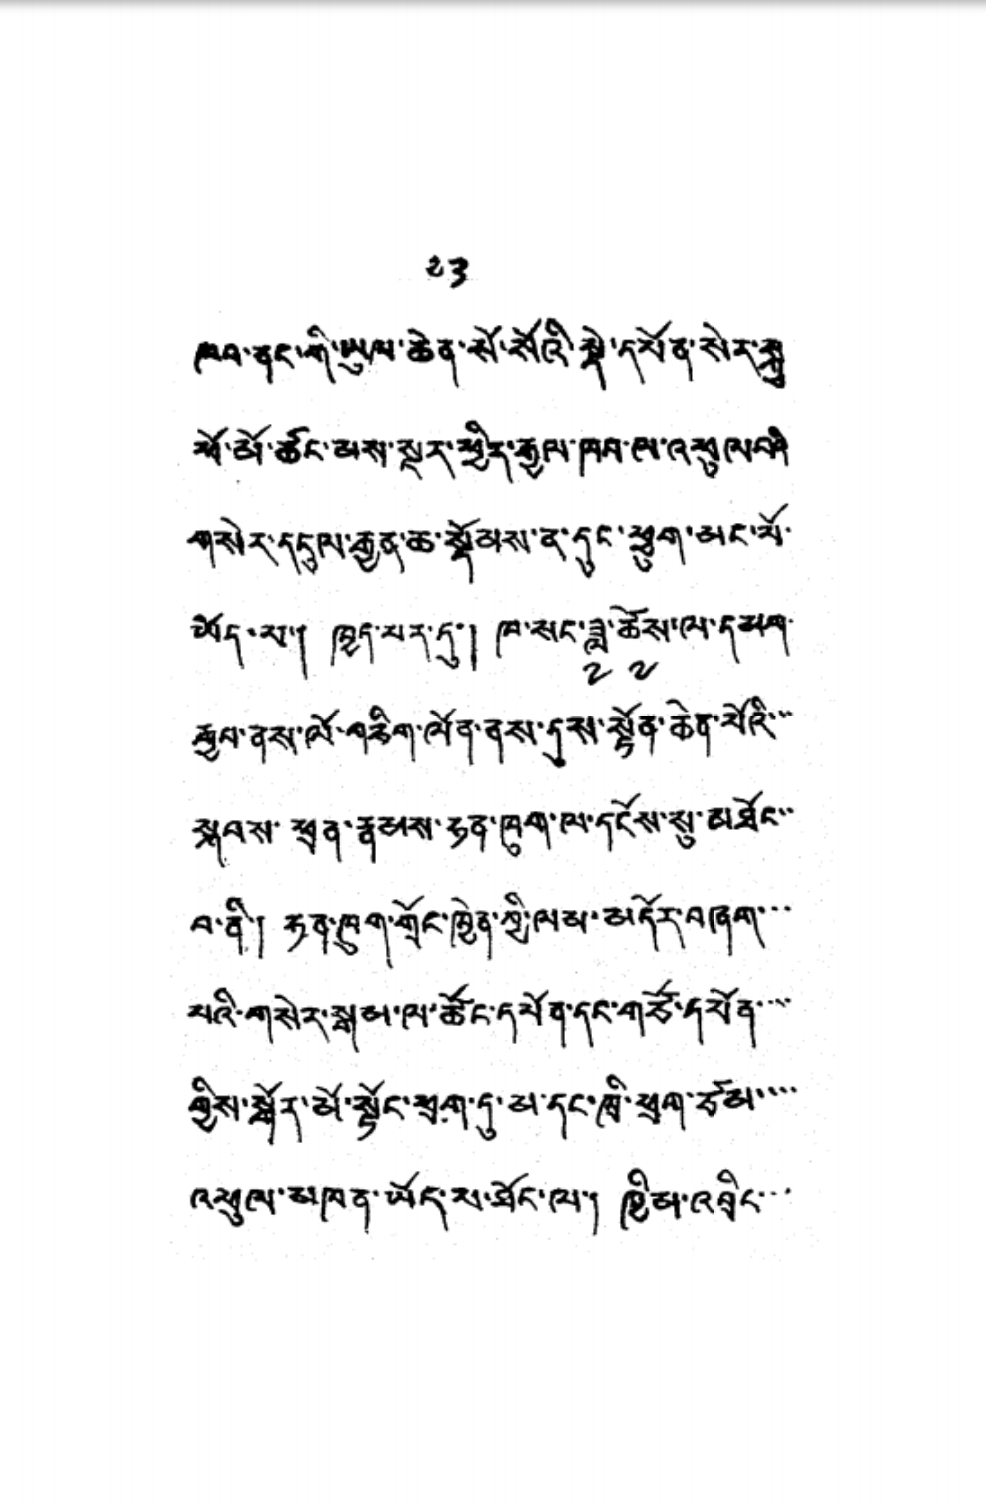 ༢༣
ཁབ་ནང་གི་ཡུལ་ཆེན་སོ་སོའི་སྡེ་དཔོན་སེར་སྐྱ
ཕོ་མོ་ཚང་མས་སྔར་ཕྱིར་རྒྱལ་ཁབ་ལ་འཕུལ་བཞི
གསེར་དངུལ་རྒྱན་ཆ་སྡོམས་ན་དུང་ཕྱུག་མང་པོ་
ཡོད་པ། ཁྱད་པར་དུ། ཁ་སང་ཟླ་ཚེས་ལ་དམག
༢ ༧
རྒྱབ་ནས་ལོ་གཅིག་ལོན་ནས་དུས་སྟོན་ཆེན་པོའི་
སྐབས་ ཕྲན་རྣམས་ཧན་ཁུག་ལ་དངོས་སུ་མཐོང་
བ་ནི། ཧན་ཁུག་གྲོང་ཁྱེན་ཀྱི་ལམ་མདོར་བཞག་
པའི་གསེར་སྒམ་ལ་ཚོང་དཔོན་དང་གཙོ་དཔོན་
གྱིས་སྒོར་མོ་སྟོང་ཕྲག་དུ་མ་དང་ཁྲི་ཕྲག་ཙམ་
འཕུལ་མཁན་ཡོད་པ་མཐོང་ལ། ཁྱིམ་འབྲིང་